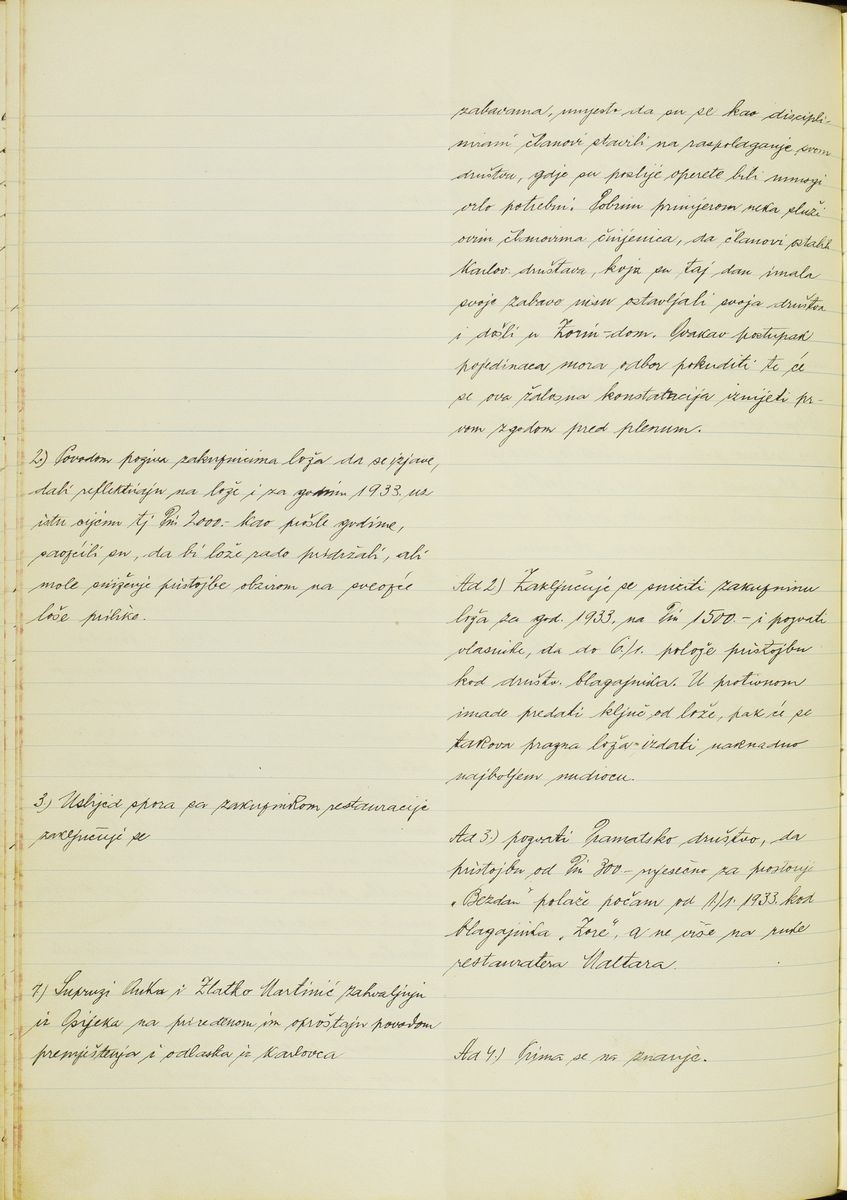 zabavama, umjesto da su se kao discipli-
nirani članovi stavili na raspolaganje svom
društvu, gdje su poslije operete bili mnogi
vrlo potrebni. Dobrim primjerom neka služi
ovim članovima činjenica, da članovi ostalih
Karlov. društava, koja su taj dan imala
svoje zabave nisu ostavljali svoja društva
i došli u Zorin-dom. Ovakav postupak
pojedinaca mora odbor pokuditi te će
se ova žalosna konstatacija iznijeti pr-
vom zgodom pred plenum.
2.) Povodom poziva zakupnicima loža da se izjave,
dali reflektiraju na lože i za godinu 1933. uz
istu cijenu tj Din 2000.- kao prošle godine,
saopćili su, da bi lože rado pridržali, ali
mole sniženje pristojbe obzirom na sveopće
loše prilike.
Ad 2.) Zaključuje se sniziti zakupninu
loža za god. 1933. na Din 1500.- i pozvati
vlasnike, da do 6./1. polože pristojbu
kod društv. blagajnika. U protivnom
imade predati ključ od lože, pak će se
takova prazna loža izdati naknadno
najboljem nudiocu.
3.) Uslijed spora sa zakupnikom restauracije
zaključuje se
Ad 3.) pozvati Dramatsko društvo, da
pristojbu od Din 300.- mjesečno za prostorije
„Bezdan" polaže počam od 1./1. 1933. kod
blagajnika „Zore", a ne više na ruke
restauratera Maltara.
4.) Supruzi Anka i Zlatko Martinić zahvaljuju
iz Osijeka na priređenom im oproštaju povodom
premještenja i odlaska iz Karlovca
Ad 4.) Prima se na znanje.